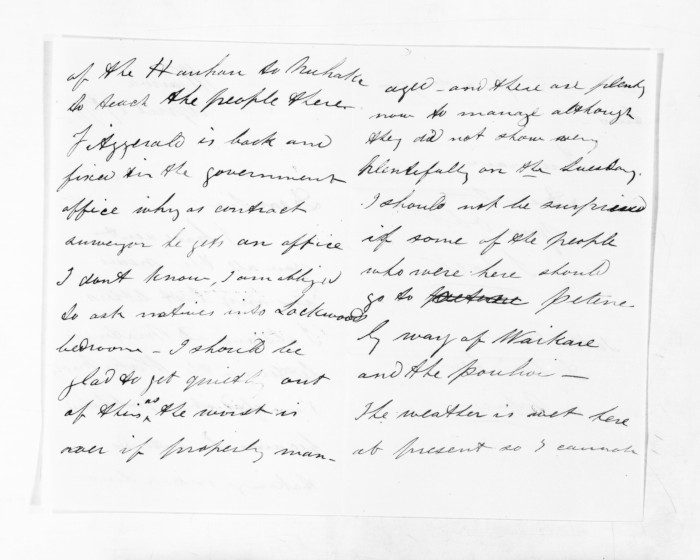 of the Hauhau to Nuhaka
to teach the people there.
FitzGerald is back and
fixed in the government
office why as contract
surveyor he gets an office
I dont know, I am obliged
to ask natives into Lockwoods
bedroom - I should be
glad to get quietly out
of this as the worst is
over if properly man-
aged - and there are plenty
now to manage although
they did not show very
plentifully on the Tuesday.
I should not be surprised
if some of the people
who were here should
go to Petane
by way of Waikare
and the
The weather is wet here
at present so I cannot